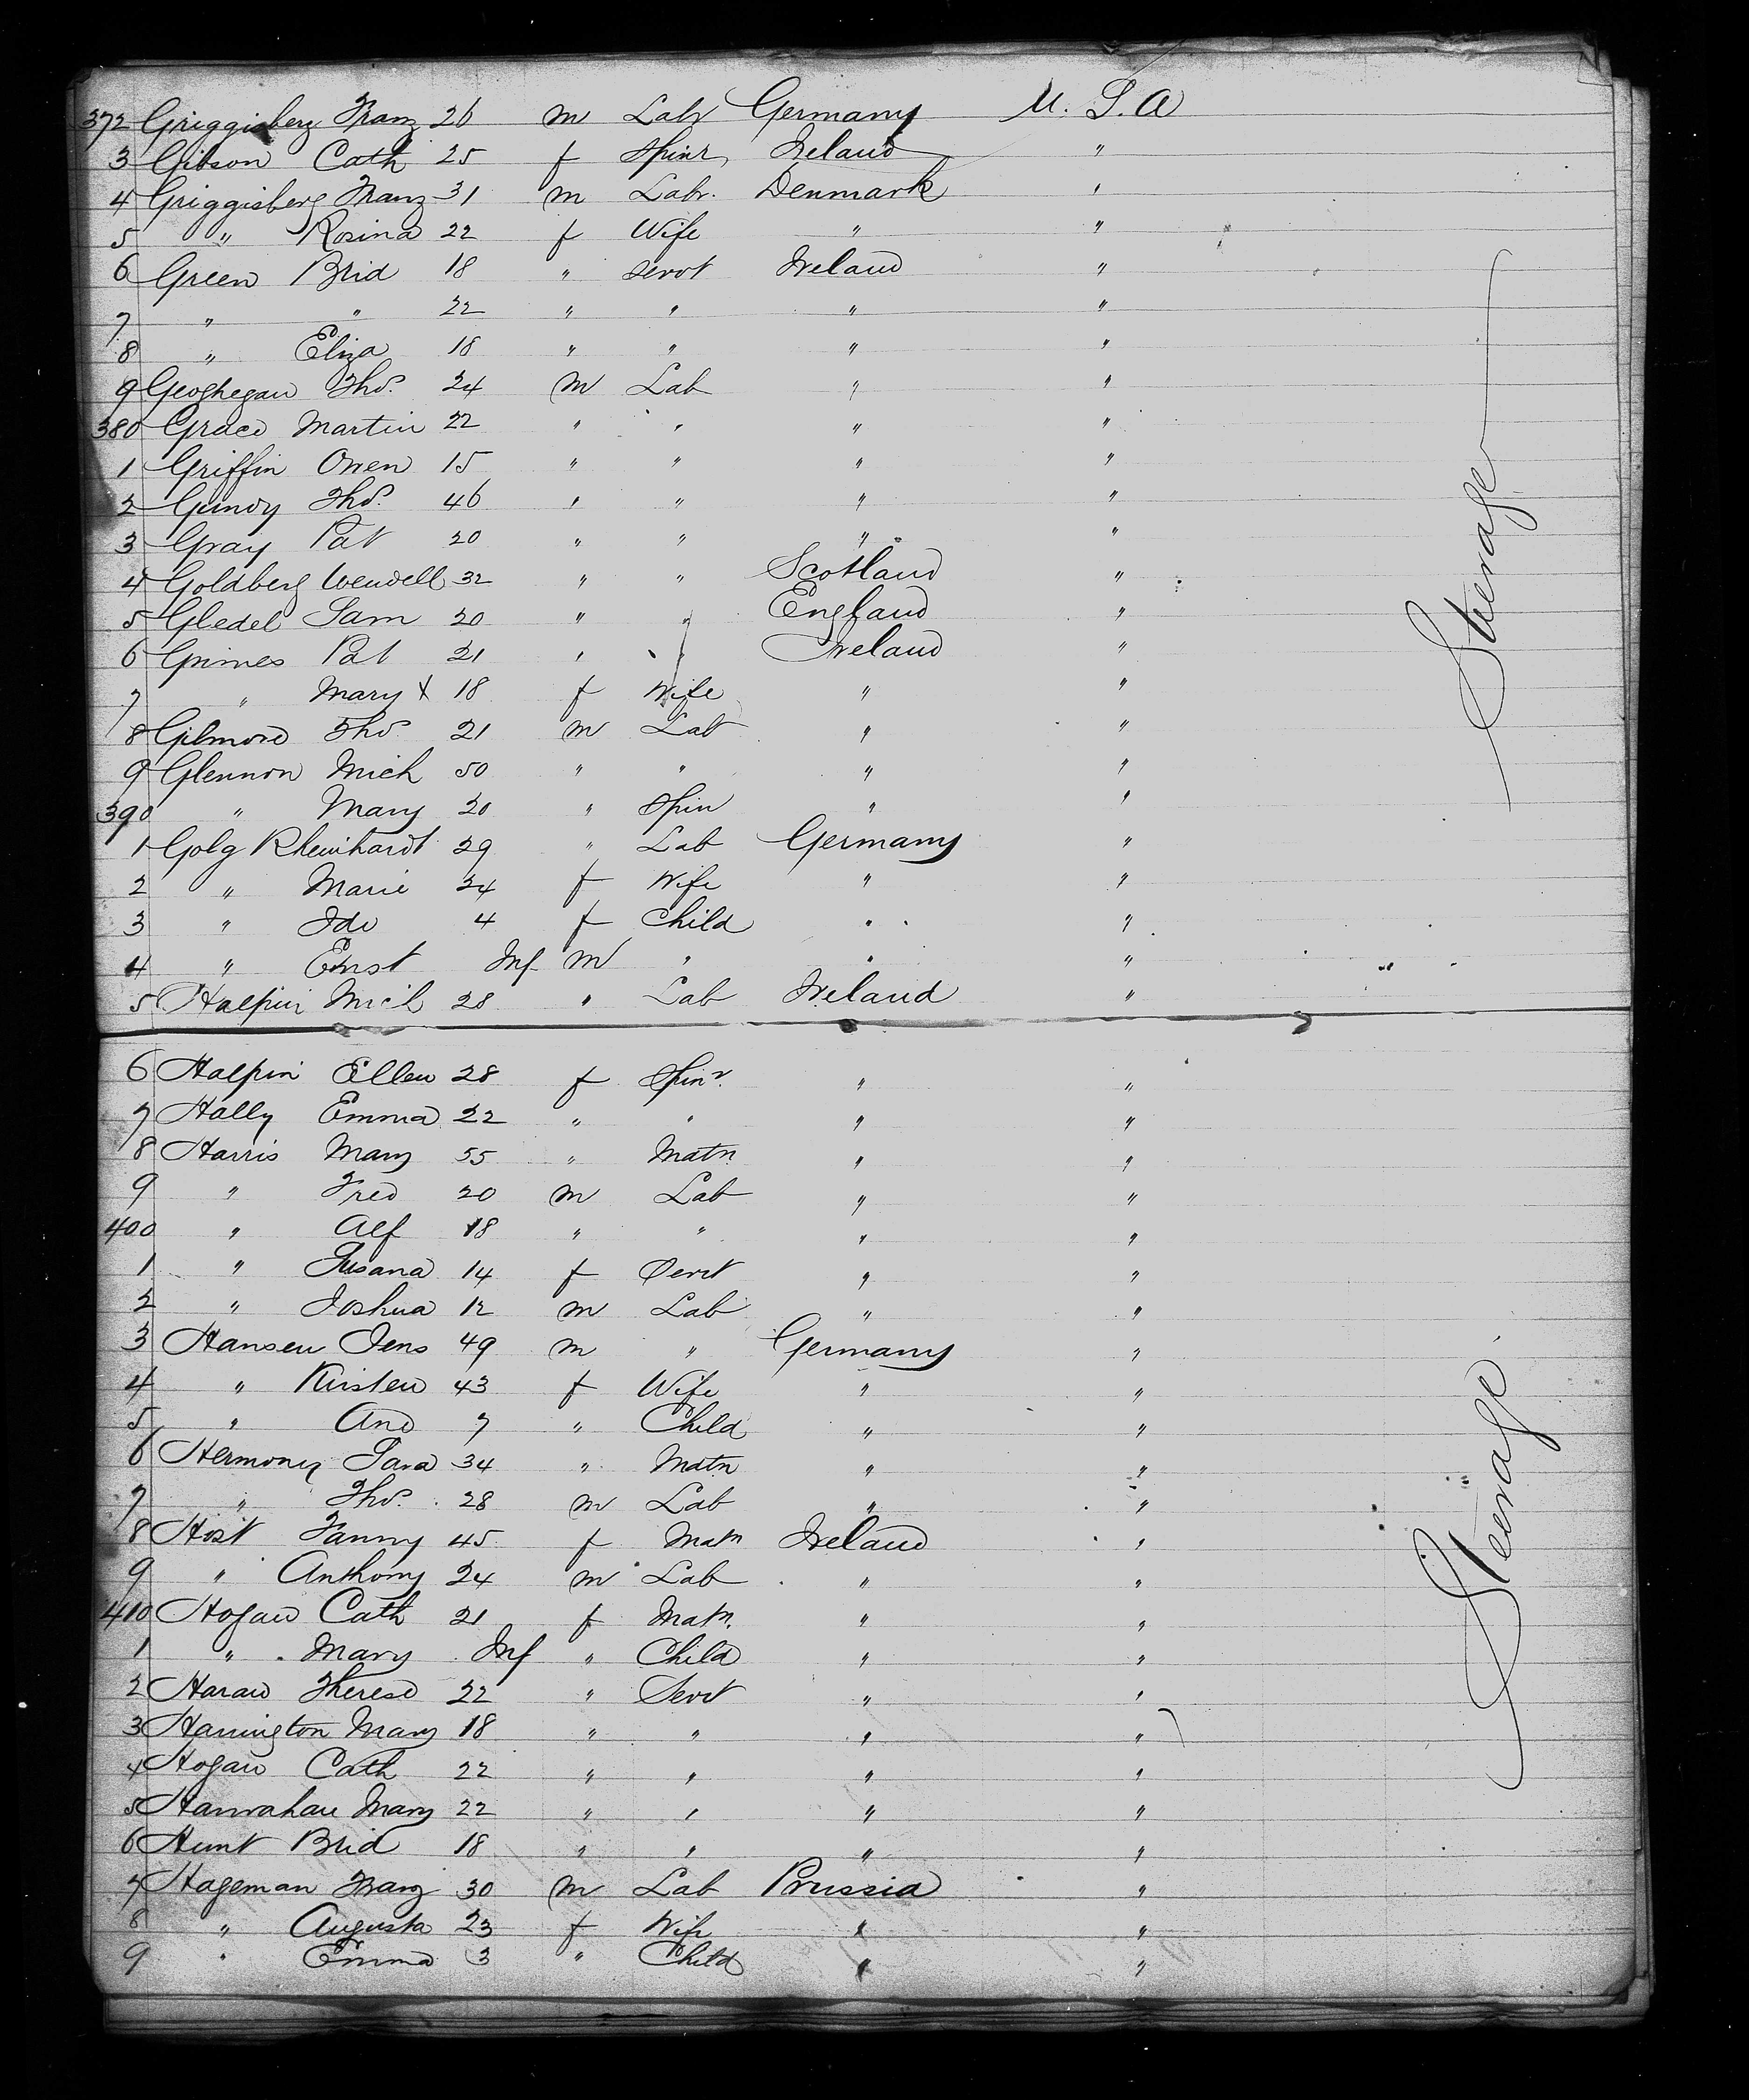 372 Griggisberg Franz 26 m Labr Germany U. S. A
3 Gibson Cath 25 f Spinr Ireland "
4 Griggisberg Franz 31 m Labr. Denmark "
5 " Rosina 22 f Wife " "
6 Green Brid 18 " Servt Ireland "
7 " " 22 " " " "
8 " Eliza 18 " " " "
9 Geoghegan Thos. 24 m Lab " "
380 Grace Martin 22 " " " "
1 Griffin Owen 15 " " " "
2 Thos. 46 " " " "
3 Gray Pat 20 " " " "
4 Goldberg Wendell 32 " " Scotland "
5 Gledel Sam 20 " " England "
6 Grimes Pat 21 " " Ireland "
7 " Mary X 18 f Wife " "
8 Gilmore Thos 21 m Lab " "
9 Glennon Mich 50 " " " "
390 " Mary 20 " Spin " "
1 Golg Rheinhardt 29 " Lab Germany "
2 " Marie 24 f Wife " "
3 " Ida 4 f Child " "
4 " Ernst Inf m " " "
5 Halpin Mich 28 " Lab Ireland "
Steerage
6 Halpin Ellen 28 f Spinr. " "
7 Hally Emma 22 " " " "
8 Harris Mary 55 " Matn " "
9 " Fred 20 m Lab " "
400 " Alf 18 " " " "
1 " Susana 14 f Servt " "
2 " Joshua 12 m Lab " "
3 Hansen Jens 49 m " Germany "
4 " Kirsten 43 f Wife " "
5 " And 7 " Child " "
6 Hermony Sara 34 " Matn " "
7 " Thos. 28 m Lab " "
8 Host Fanny 45 f Matn Ireland "
9 " Anthony 24 m Lab " "
410 Hogan Cath 21 f Matn. " "
1 " Mary Inf " Child " "
2 Haran Therese 22 " Servt " "
3 Harrington Mary 18 " " " "
4 Hogan Cath 22 " " " "
5 Hanrahan Mary 22 " " " "
6 Hunt Brid 18 " " " "
7 Hageman Franz 30 m Lab Prussia "
8 " Augusta 23 f Wife " "
9 " Emma 3 " Child " "
Steerage